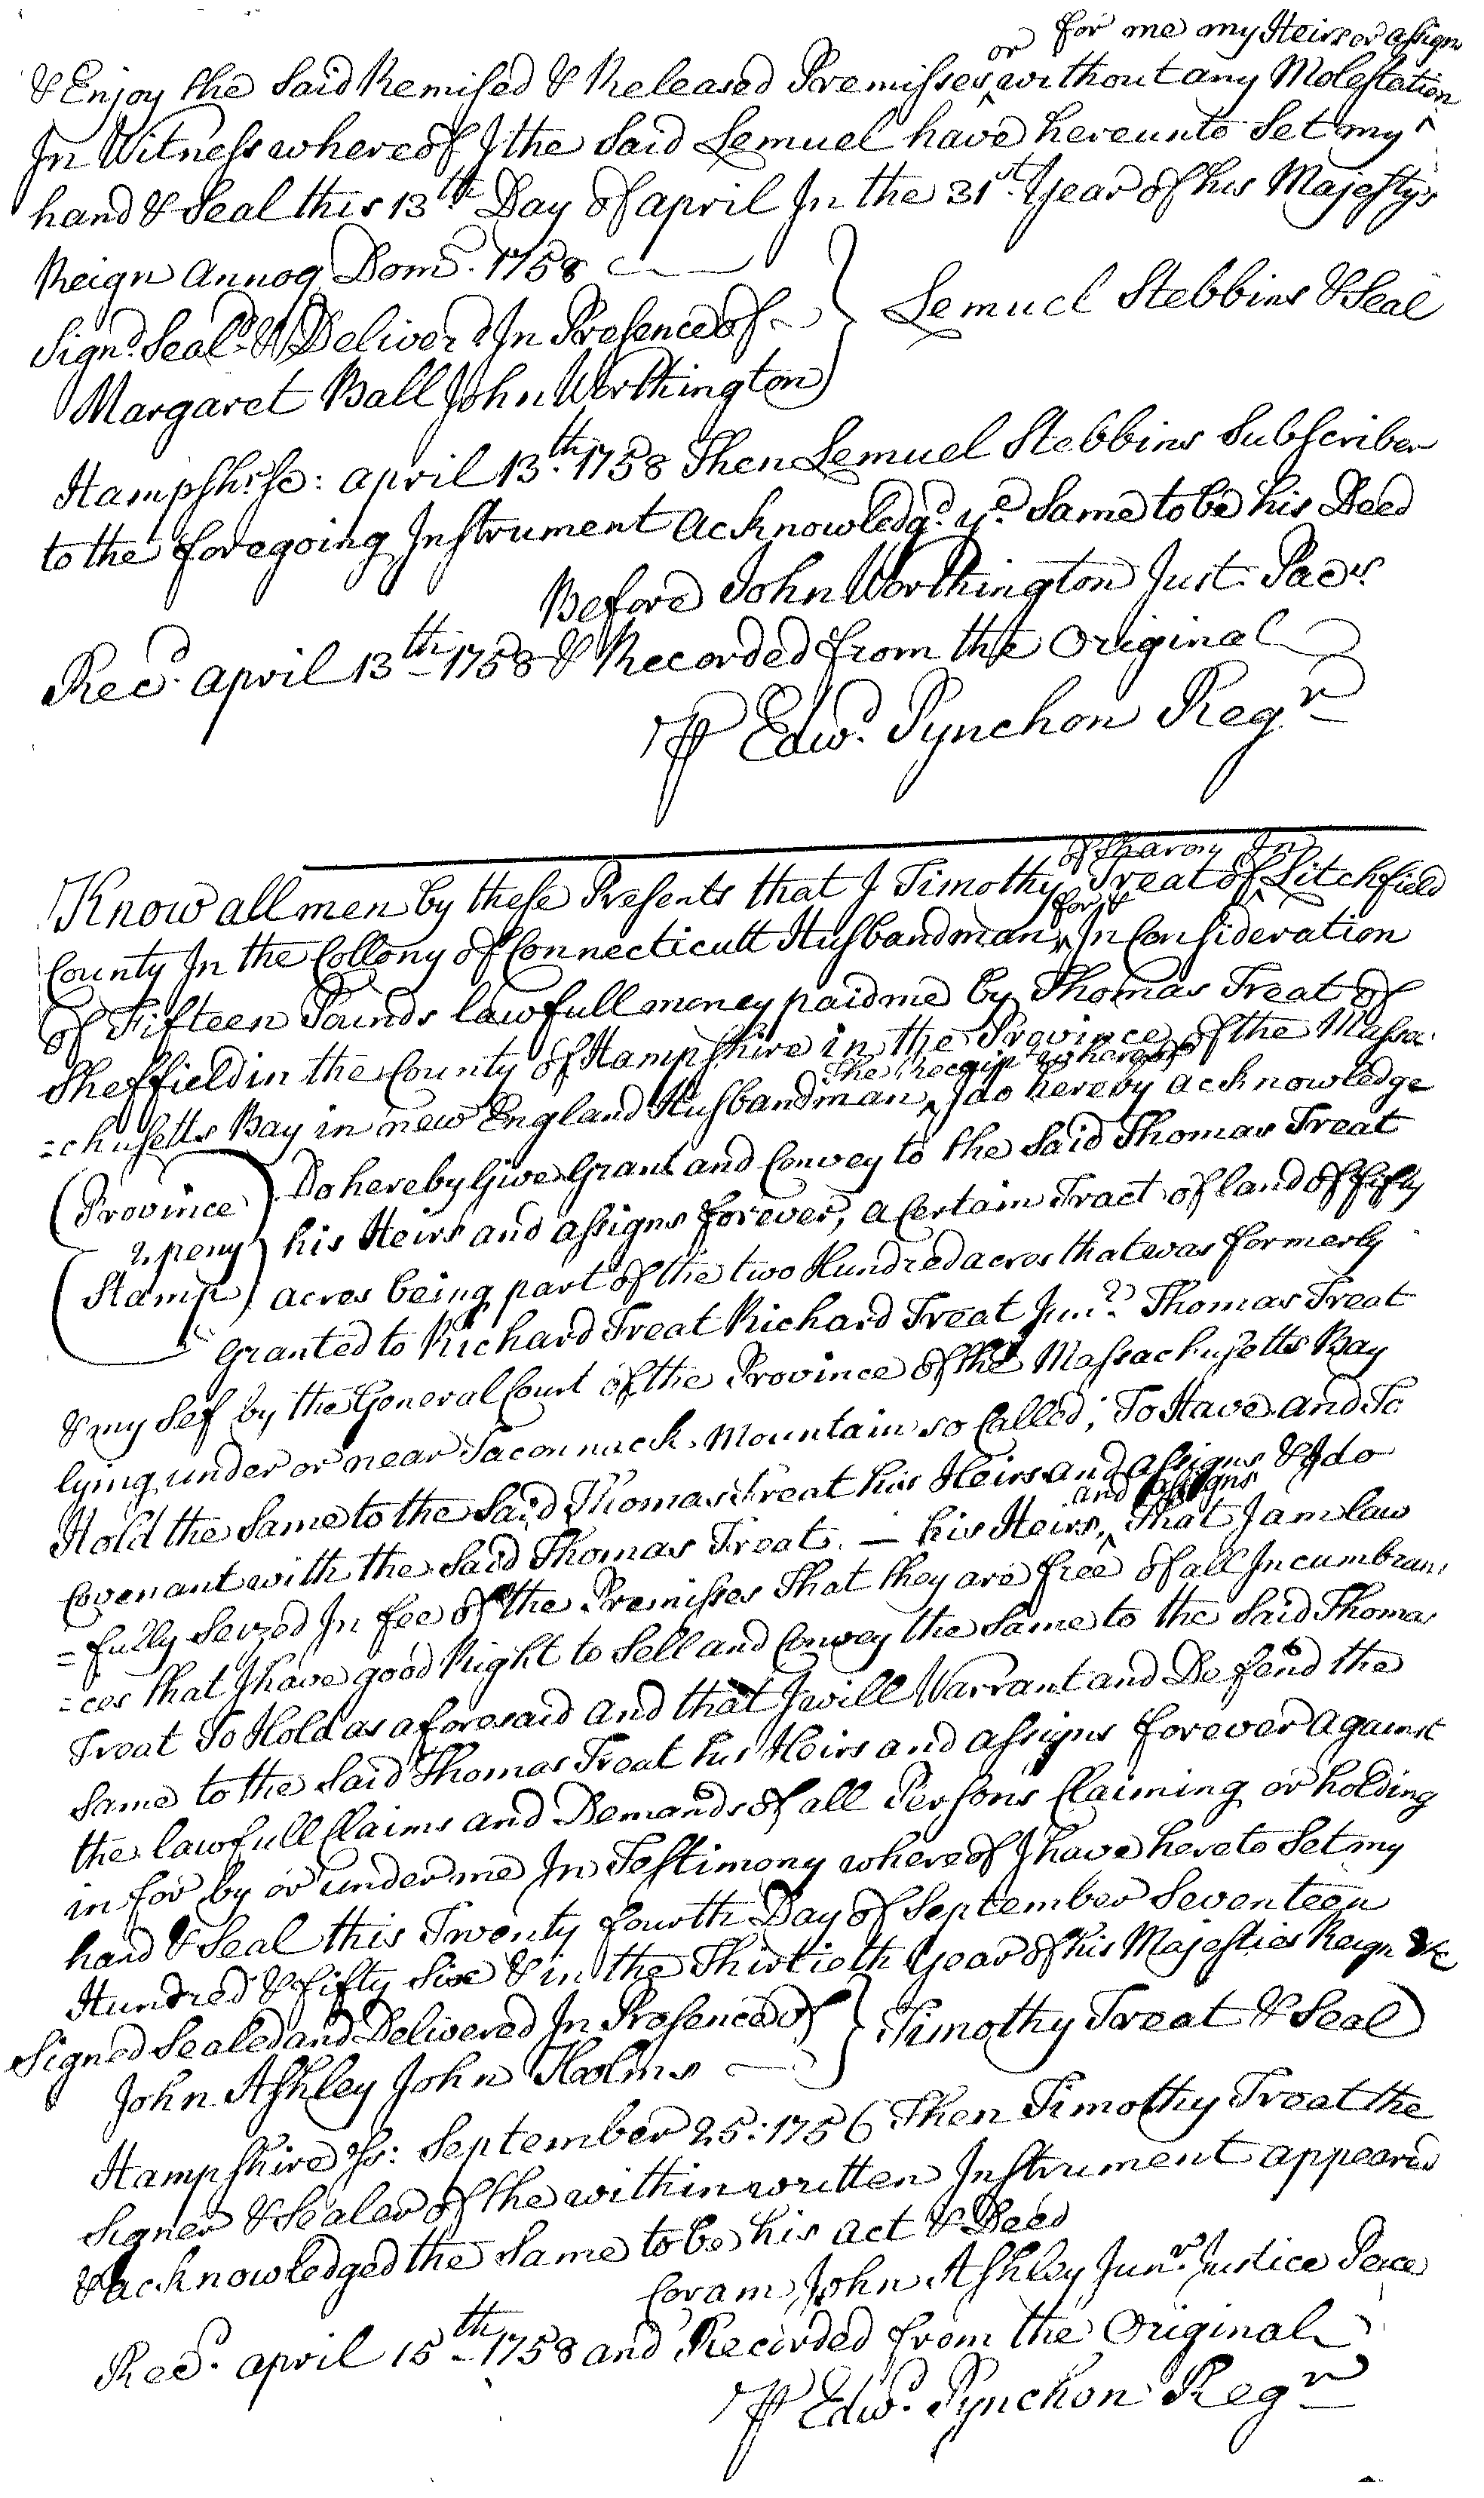 for me my Heirs or assigns
or
& Enjoy the Said Remised & Released Premisses without any Molestation
In Witness whereof I the Said Lemuel have hereunto Set my
hand & Seal this 13th Day of april In the 31st Year of his Majestys
Reign annoq Dom. 1758
Signd. Seald. & Deliverd In Presence of } Lemuel Stebbins & Seal
Margaret Ball John Worthington
Hampshr. Sc: april 13th. 1758 Then Lemuel Stebbins Subscriber
to the foregoing Instrument acknowledgd. ye. Same to be his Deed
Before John Worthington Just. Pacs
Recd. april 13th 1758 & Recorded from the Original
P Edwd. Pynchon Regr
of Sharon In
Know all men by these Presents that I Timothy Treat of Litchfield
for &
County In the Collony of Connecticutt Husbandman In Consideration
of Fifteen Pounds lawfull money paid me by Thomas Treat of
Sheffield in the County of Hampshire in the Province of the Massa
The Receipt whereof
=chusetts Bay in new England Husbandman I do hereby acknowledge
Do hereby Give Grant and Convey to the Said Thomas Treat
(Province
2 peny
Stamp)
his Heirs and assigns forever, a Certain Tract of land of fifty
acres being part of the two Hundred acres that was formerly
Granted to Richard Treat Richard Treat Junr. Thomas Treat
& my Self by the General Court of the Province of the Massachusetts Bay
lying under or near Taconnuck Mountain so Called; To Have and To
Hold the Same to the Said Thomas Treat his Heirs and assigns & I do
and assigns
Covenant with the Said Thomas Treat. — his Heirs, That I am law
=fully Seized In fee of the Premisses That they are free of all Incumbran
=ces that I have good Right to Sell and Convey the Same to the Said Thomas
Treat To Hold as aforesaid and that I will Warrant and Defend the
Same to the Said Thomas Treat his Heirs and assigns forever against
the lawfull Claims and Demands of all Persons Claiming or holding
in for by or under me In Testimony whereof I have hereto Set my
hand & Seal this Twenty fourth Day of September Seventeen
Hundred & fifty Six & in the Thirtieth Year of his Majesties Reign &c
Signed Sealed and Delivered In Presence of } Timothy Treat & Seal
John Ashley John Hoolms
Hampshire Ss: September 25: 1756 Then Timothy Treat the
Signer & Sealer of the within written Instrument appeared
& acknowledged the Same to be his act & Deed
Coram John Ashley Junr. Justice Peace
Recd. april 15th 1758 and Recorded from the Original
P Edwd. Pynchon Regr